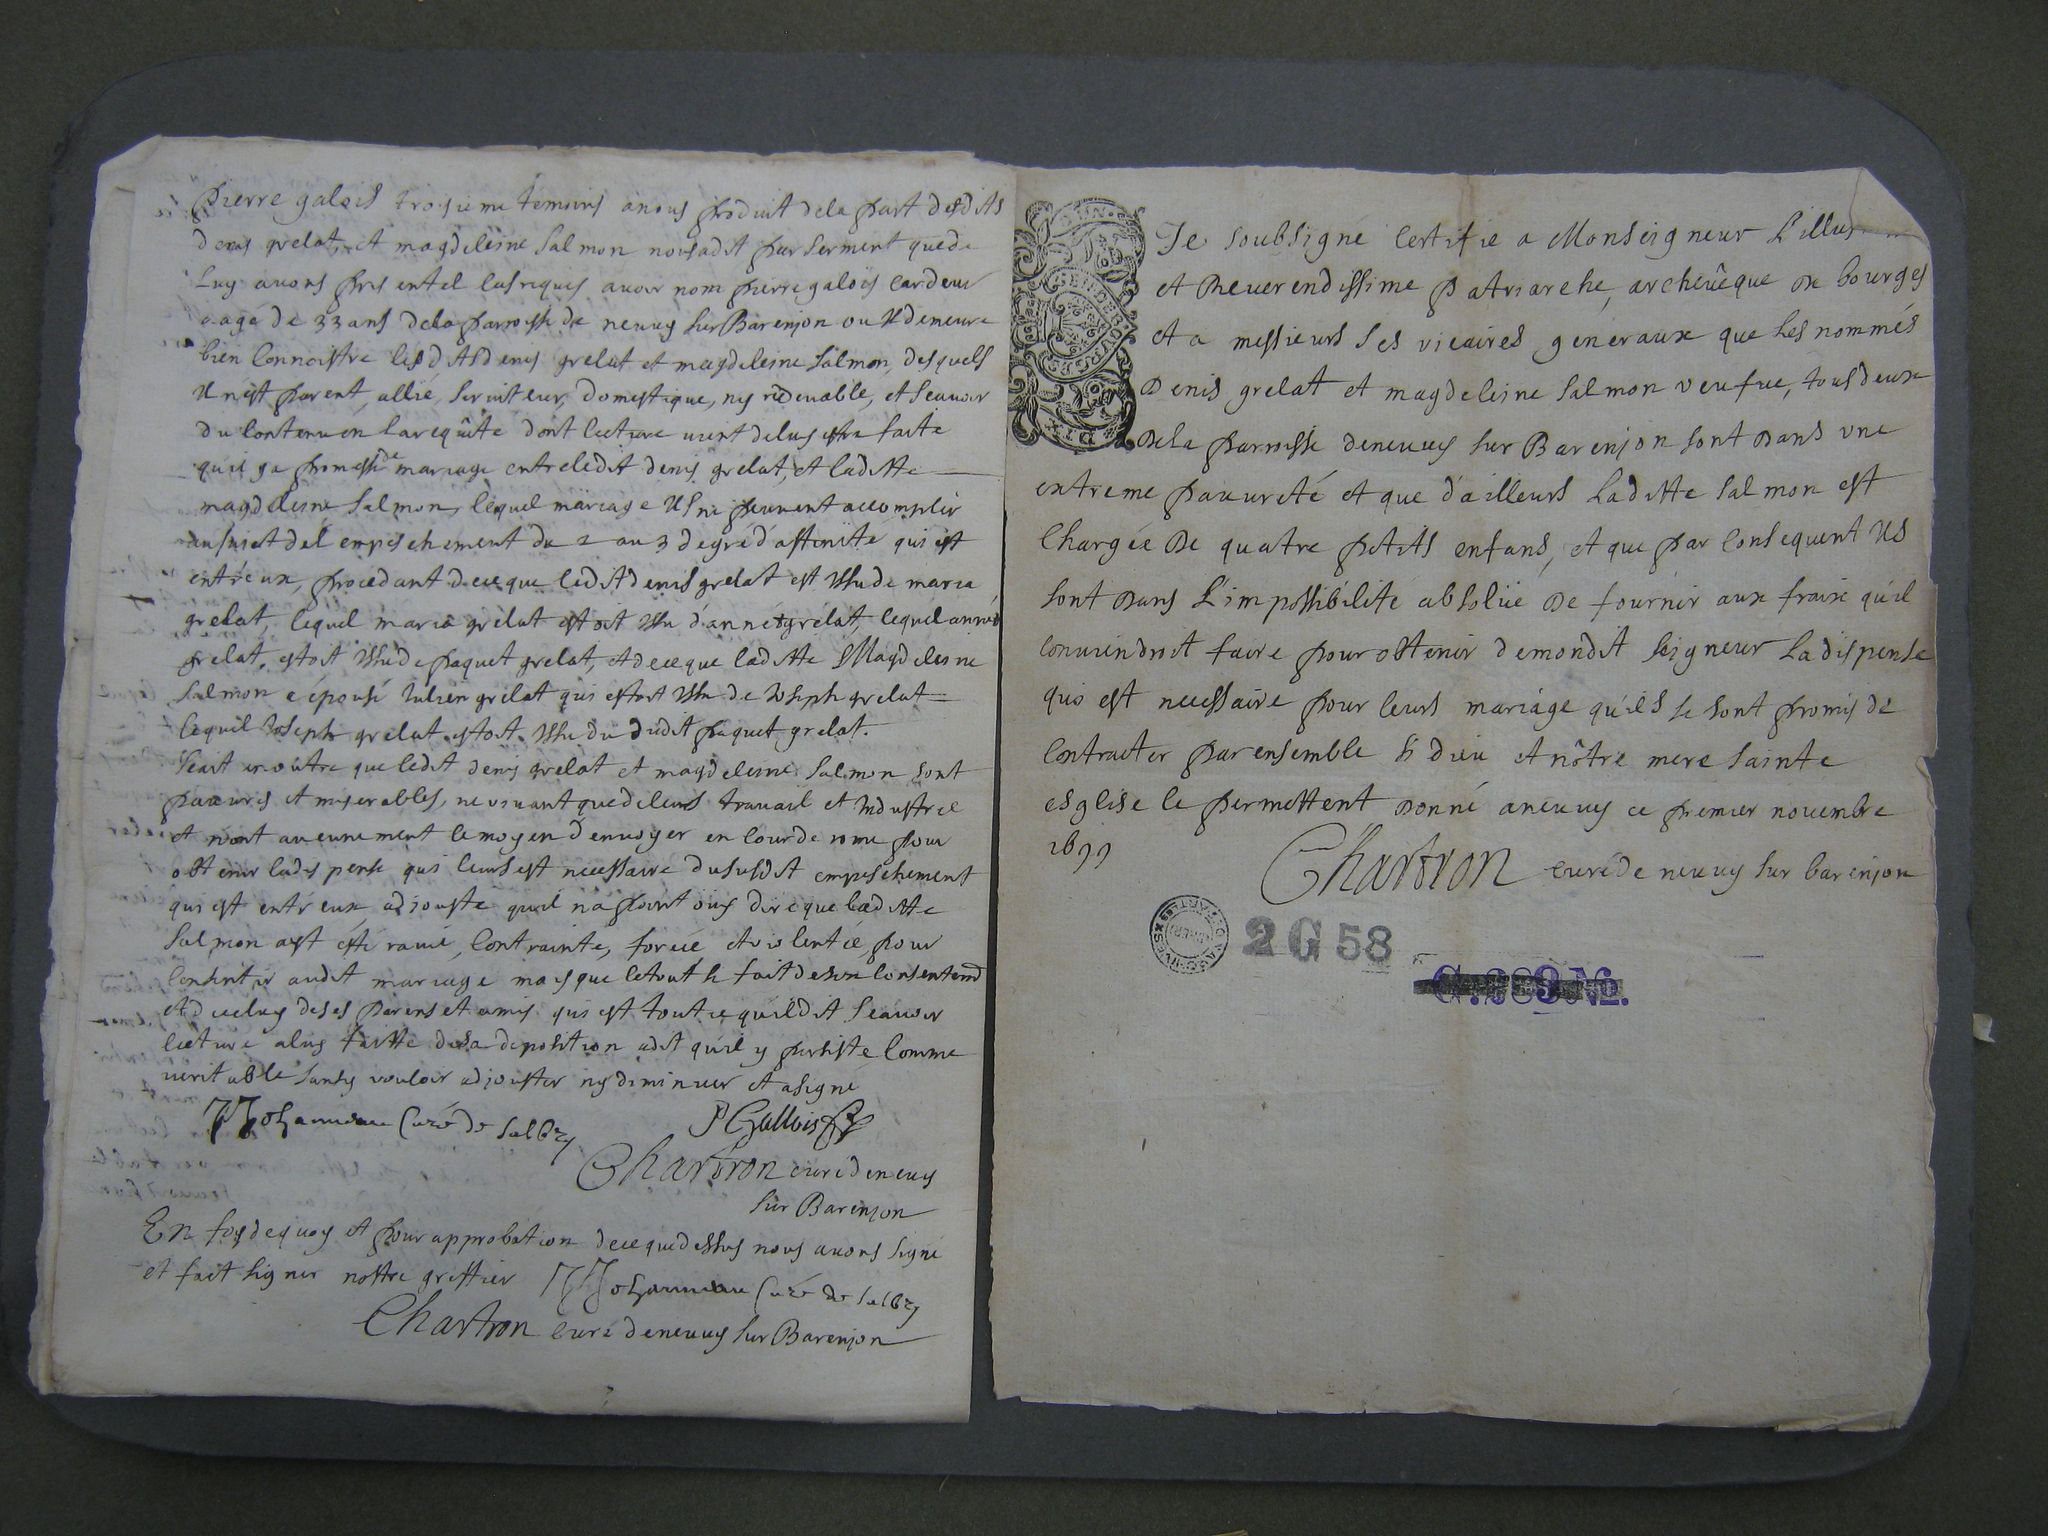 Pierre galois troisieme temoins anous produit dela part desdits
denis grelat, et magdeleine Salmon nous adit par serment que de
Luy avons pris en tel cas requis avoir nom pierre galois Cardeur
aagé de 33 ans dela parroisse de neuvy sur Barenjon ou Il demeure
bien Connoistre lesdits denis grelat et magdeleine Salmon, desquels
Il n'est parent, allié, serviteur, domestique, ny redevable, et Scavoir
du Contenu en la requête dont lecture vient deluy estre faite
qu'il ya promesse de mariage entre ledit denis grelat, et laditte
magdeleine Salmon, lequel mariage Ils ne peuvent accomplir
au sujet de l'empeschement du 2 au 3 degré d'affinité qui est
entr'eux, procedant de ce que ledit denis grelat est Issu de marie
grelat, lequel marie grelat estoit Issu d'anné grelat, lequel anné
grelat, estoit Issu de paquet grelat, et de ce que laditte Magdeleine
Salmon a épousé Iulien grelat qui estoit Issu de Ioseph grelat
lequel Ioseph grelat estoit Issu du dudit paquet grelat.
Scait en oûtre que ledit denis grelat et magdeleine Salmon sont
pauvres et miserables, ne vivant que de leurs travail et Industrie
et n'ont aucunement le moyen d'envoyer en Cour de rome pour
obtenir la dispense qui leurs est necessaire du susdit empeschement
qui est entr'eux, adjouste qu'il n'a point ouy dire que laditte
Salmon ayt esté ravie, Contrainte, forcée et violentée, pour
Consentir audit mariage mais que le tout se fait de son Consentemt
et de celuy de ses parens et amis qui est tout ce qu'il dit Scavoir
lecture a luy faitte de sa deposition a dit qu'il y persiste Comme
veritable sans y vouloir adjouster ny diminuer et a signé
Curé de Salbry P Gallois
Chartron curé de neuvy
sur Barenjon
En foy de quoy et pour approbation de ce que dessus nous avons signé
et fait signer nostre greffier Curé de Salbry
Chartron curé de neuvy sur Barenjon
GEN. DE BOURGES
Je soubsigné Certifie a Monseigneur L'illus
et Reverendissime Patriarche, archevêque de bourges
et a messieurs ses vicaires generaux que les nommés
Denis grelat et magdeleine Salmon veufve, tous deux
De la parroisse de neuvy sur Barenjon sont dans une
extreme pauvreté et que d'ailleurs laditte Salmon est
Chargée De quatre petits enfans, et que par Consequent Ils
sont dans L'impossibilité absolüe De fournir aux fraix qu'il
conviendroit faire pour obtenir de mondit seigneur la dispense
qui est necessaire pour leurs mariage qu'ils se sont promis de
Contracter par ensemble si dieu et nôtre mere sainte
esglise le permettent Donné a neuvy ce premier novembre
1699
Chartron curé de neuvy sur barenjon
2 G 58